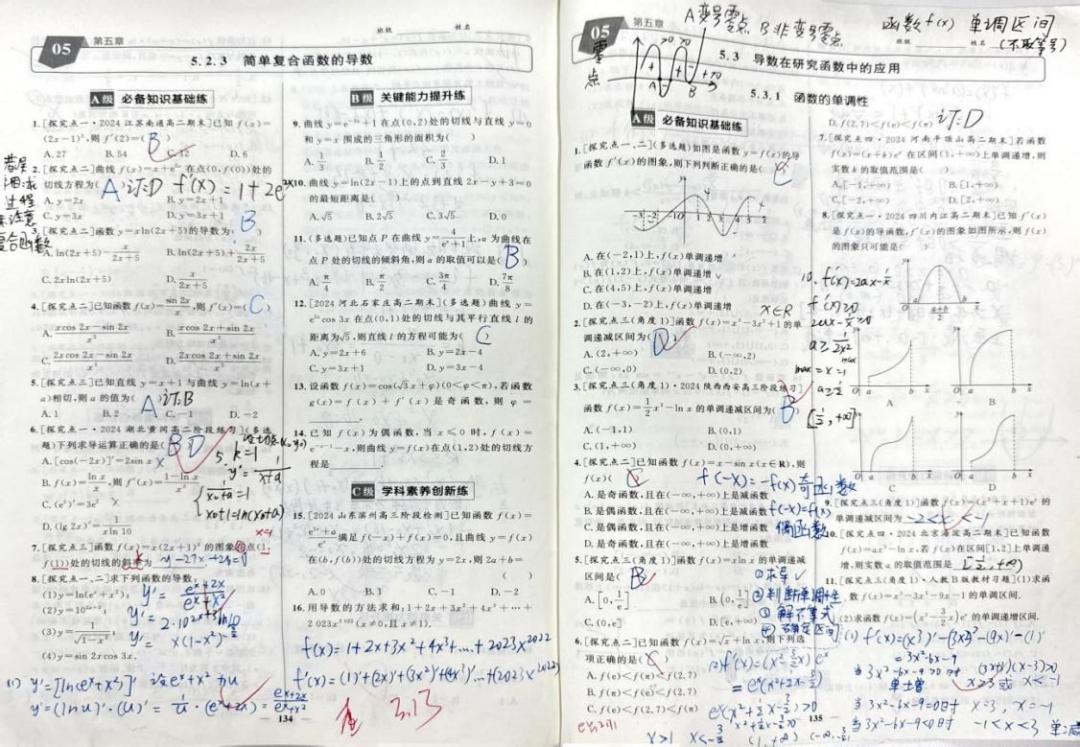 班级 姓名
05 第五章
5.2.3 简单复合函数的导数
A级 必备知识基础练
1.[探究点一·2024江苏南通高二期末]已知f(x)=
(2x-1)³,则f'(2)=( B )
A.27 B.54 C.12 D.6
2.[探究点二]曲线f(x)=x+e²ˣ在点(0,f(0))处的
切线方程为( A ) 订:D f'(x)=1+2e²ˣ
A.y=2x B.y=2x+1
C.y=3x D.y=3x+1
3.[探究点二]函数y=xln(2x+5)的导数为( B )
A.ln(2x+5)-x/(2x+5) B.ln(2x+5)+2x/(2x+5)
C.2xln(2x+5) D.x/(2x+5)
4.[探究点二]已知函数f(x)=sin 2x/x,则f'(x)=( C )
A.(xcos 2x-sin 2x)/x² B.(xcos 2x+sin 2x)/x²
C.(2xcos 2x-sin 2x)/x² D.(2xcos 2x+sin 2x)/x²
5.[探究点三]已知直线y=x+1与曲线y=ln(x+
a)相切,则a的值为( A ) 订:B
A.1 B.2 C.-1 D.-2
6.[探究点一·2024湖北黄冈高二阶段练习](多选
题)下列求导运算正确的是( BD )
A.[cos(-2x)]'=2sin x
B.f(x)=ln x/x,则f'(x)=(1-ln x)/x²
C.(eˣ)'=3eˣ
D.(lg 2x)'=1/(xln 10)
5. k=1 设切点(x₀,y₀)
y'=1/(x+a)
1/(x₀+a)=1
x₀+1=ln(x₀+a)
7.[探究点三]函数f(x)=x(2x+1)³的图象在点(1,
f(1))处的切线的斜率为
8.[探究点一、二]求下列函数的导数:
(1)y=ln(eˣ+x²);
(3)y=
(4)y=sin 2xcos 3x.
(1) y'=[ln(eˣ+x²)]' 设eˣ+x²为u
y'=(ln u)'·(u)'=1/u·(eˣ+2x)=(eˣ+2x)/(eˣ+x²)
B级 关键能力提升练
9.曲线y=e⁻²ˣ+1在点(0,2)处的切线与直线y=0
和y=x围成的三角形的面积为( )
A.1/3 B.1/2 C.2/3 D.1
10.曲线y=ln(2x-1)上的点到直线2x-y+3=0
的最短距离是( )
A.√5 B.2√5 C.3√5 D.0
11.(多选题)已知点P在曲线y=4/(eˣ+1)上,α为曲线在
点P处的切线的倾斜角,则α的取值可以是( B )
A.π/4 B.π/2 C.3π/4 D.7π/8
12.[2024河北石家庄高二期末](多选题)曲线y=
e²ˣcos 3x在点(0,1)处的切线与其平行直线l的
距离为√5,则直线l的方程可能为( C )
A.y=2x+6 B.y=2x-4
C.y=3x+1 D.y=3x-4
13.设函数f(x)=cos(√3x+φ)(0<φ<π),若函数
g(x)=f(x)+f'(x)是奇函数,则φ=
14.已知f(x)为偶函数,当x≤0时,f(x)=
e⁻ˣ⁻¹-x,则曲线y=f(x)在点(1,2)处的切线方
程是
C级 学科素养创新练
15.[2024山东滨州高三阶段检测]已知函数f(x)=
满足f(-x)+f(x)=0,且曲线y=f(x)
在(b,f(b))处的切线方程为y=2x,则2a+b=
( )
A.0 B.1 C.-1 D.-2
16.用导数的方法求和:1+2x+3x²+4x³+…+
2 023x²⁰²²(x≠0,且x≠1).
f(x)=1+2x+3x²+4x³+...+2023x²⁰²²
f'(x)=(1)'+(2x)'+(3x²)'+(4x³)'...+(2023x²⁰²²)'
3.13
134
A变号零点 B非变号零点 函数f(x) 单调区间
(不取等号)
零点
05 第五章
班级 姓名
5.3 导数在研究函数中的应用
5.3.1 函数的单调性
A级 必备知识基础练
1.[探究点一、二](多选题)如图是函数y=f(x)的导
函数f'(x)的图象,则下列判断正确的是( C )
A.在(-2,1)上,f(x)单调递增
B.在(1,2)上,f(x)单调递增
C.在(4,5)上,f(x)单调递增
D.在(-3,-2)上,f(x)单调递增
x∈R
2.[探究点三(角度1)]函数f(x)=x³-3x²+1的单
调递减区间为( D )
A.(2,+∞) B.(-∞,2)
C.(-∞,0) D.(0,2)
3.[探究点三(角度1)·2024陕西西安高三阶段练习]
函数f(x)=1/2x²-ln x的单调递减区间为( B )
A.(-1,1) B.(0,1)
C.(1,+∞) D.(0,+∞)
4.[探究点二]已知函数f(x)=x-sin x(x∈R),则
f(x)( C ) f(-x)=-f(x)奇函数
A.是奇函数,且在(-∞,+∞)上是减函数
B.是偶函数,且在(-∞,+∞)上是减函数 f(-x)=f(x)
C.是奇函数,且在(-∞,+∞)上是增函数 偶函数
D.是偶函数,且在(-∞,+∞)上是增函数
5.[探究点三(角度1)]函数f(x)=xln x的单调递减
区间是( B )
A.[0,1/e] B.(0,1/e]
C.(0,e] D.[e,+∞)
①求导
②判断单调性
③解不等式
④确定区间
6.[探究点三]已知函数f(x)=√x+ln x,则下列选
项正确的是( C )
A.f(e)<f(π)<f(2.7)
B.f(π)<f(e)<f(2.7)
C.f(e)<f(2.7)<f(π)
D.f(2.7)<f(e)<f(π) 订:D
7.[探究点四·2024河南平顶山高二期末]若函数
f(x)=(x+k)eˣ在区间(1,+∞)上单调递增,则
实数k的取值范围是( )
A.[-1,+∞) B.[1,+∞)
C.[-2,+∞) D.[2,+∞)
8.[探究点一·2024四川内江高二期末]已知f'(x)
是f(x)的导函数,f'(x)的图象如图所示,则f(x)
的图象只可能是( )
A B
C D
10. f'(x)=2ax-1/x
f'(x)≥0
2ax-1/x≥0
a≥1/2x²
a≥1/2
[1/2,+∞)
9.[探究点三(角度1)]函数f(x)=(x²+x+1)eˣ的
单调递减区间为 -2<x<-1
10.[探究点四·2024北京海淀高二期末]已知函数
f(x)=ax²-ln x,若f(x)在区间[1,2]上单调递
增,则实数a的取值范围是 [1/2,+∞)
11.[探究点三(角度1)·人教B版教材习题](1)求函
数f(x)=x³-3x²-9x-1的单调区间.
(2)求函数f(x)=(x²-3/2x)eˣ的单调递增区间.
(1) f'(x)=(x³)'-(3x²)'-(9x)'-(1)'
=3x²-6x-9
(3x+3)(x-3)>0
单增 x>3或x<-1
当3x²-6x-9=0时 x=3,x=-1
当3x²-6x-9<0时 -1<x<3 单减
(2)f'(x)=(x²-3/2x)'eˣ
=eˣ(x²+1/2x-3/2)
eˣ(x²+1/2x-3/2)>0
x>1 x<-3/2
135